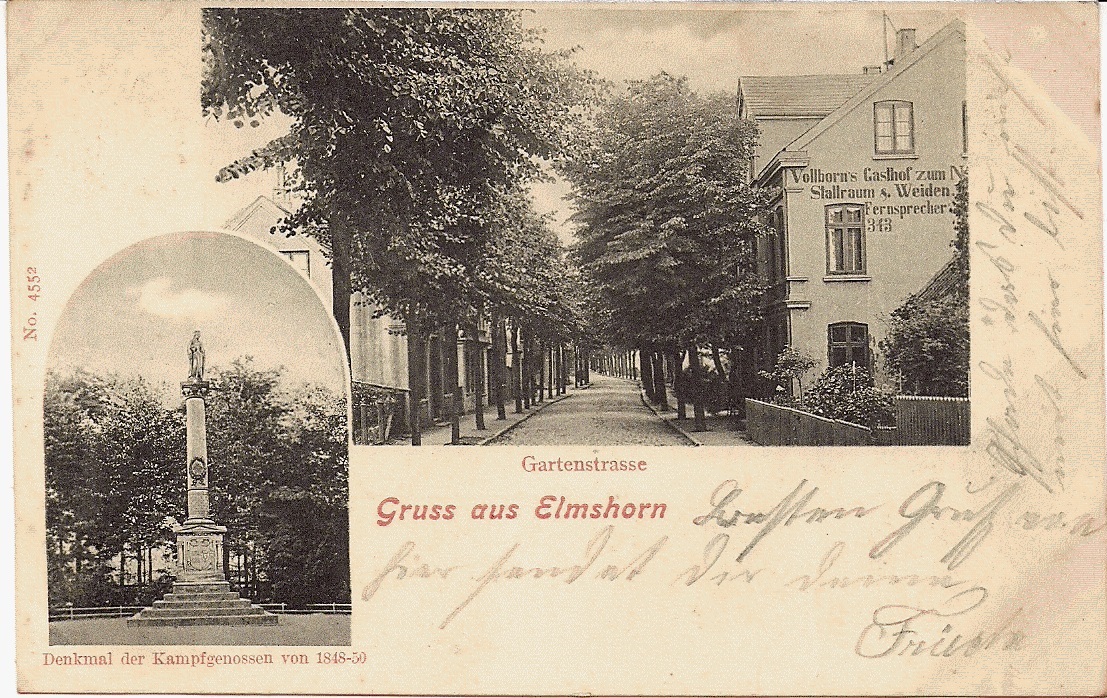 No. 4552
Vollborn's Gasthof zum N
Stallraum s. Weiden.
Fernsprecher
343
Gartenstrasse
Gruss aus Elmshorn
Besten Gruß von
hier sendet Dir deine
Denkmal der Kampfgenossen von 1848-50